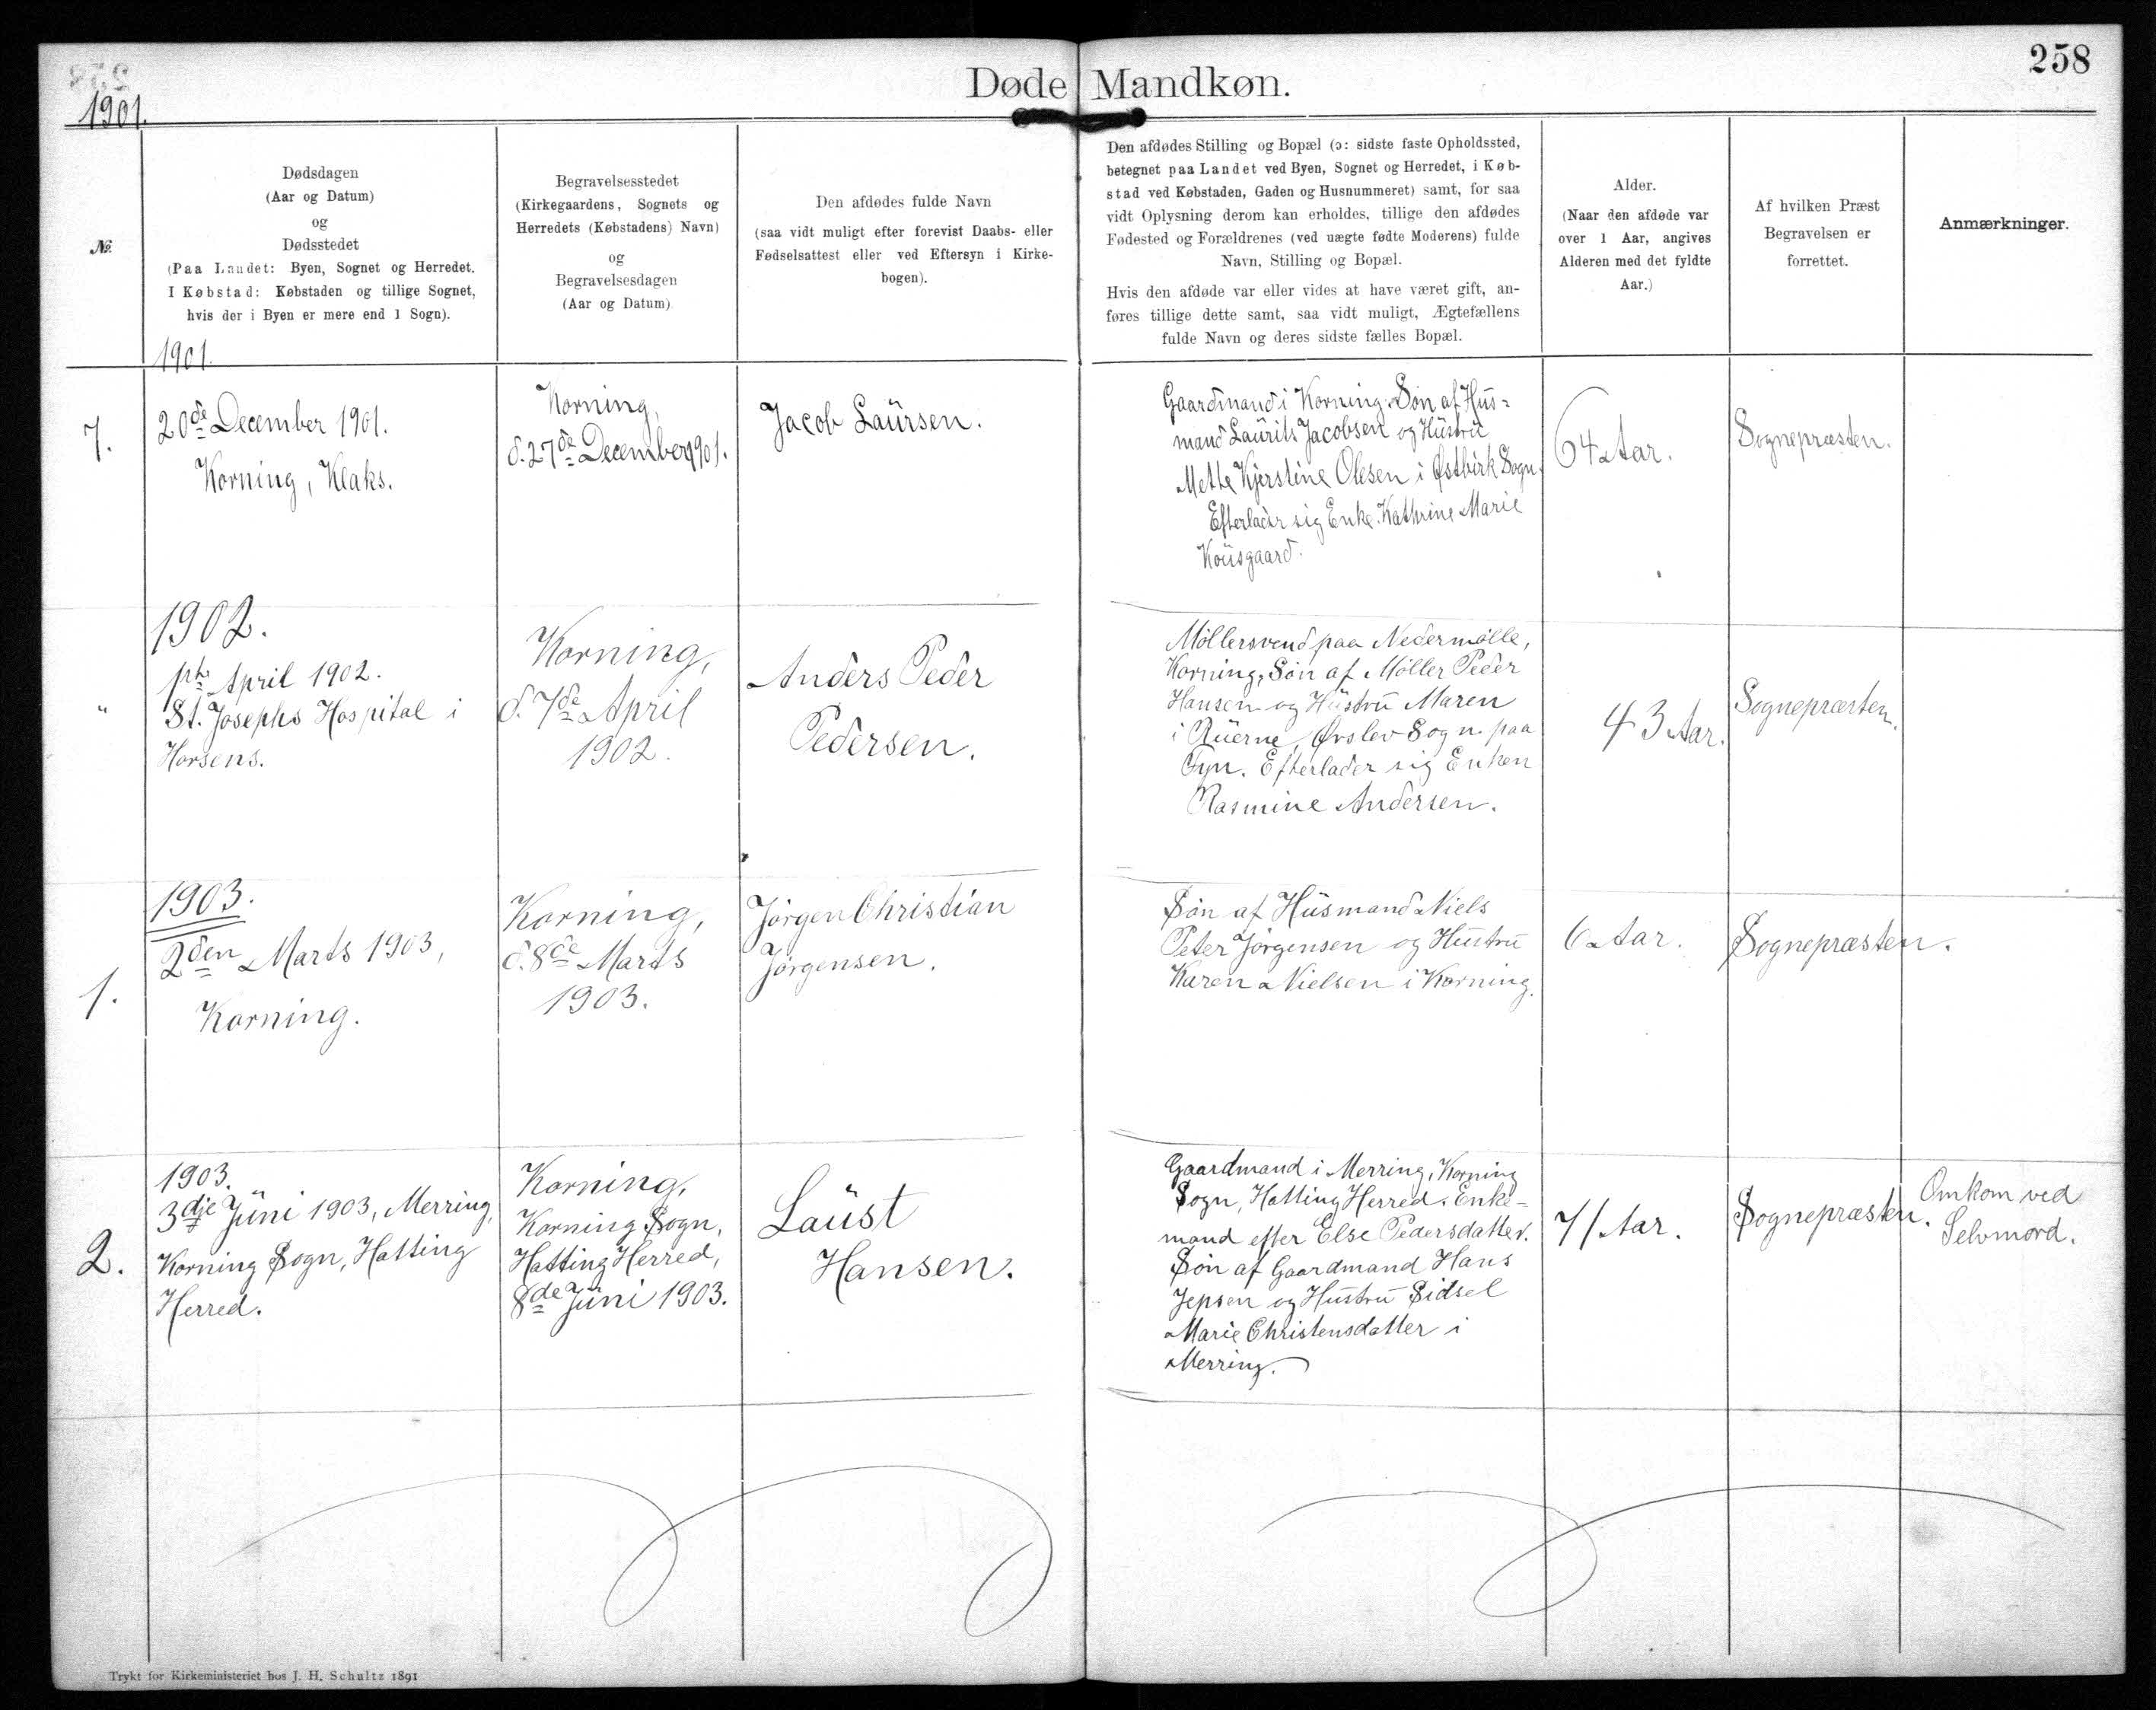 258
1901.
Døde Mandkøn.
№
Dødsdagen
(Aar og Datum)
og
Dødsstedet
(Paa Landet: Byen, Sognet og Herredet.
I Købstad: Købstaden og tillige Sognet,
hvis der i Byen er mere end 1 Sogn).
Begravelsesstedet
(Kirkegaardens, Sognets og
Herredets (Købstadens) Navn)
og
Begravelsesdagen
(Aar og Datum)
Den afdødes fulde Navn
(saa vidt muligt efter forevist Daabs- eller
Fødselsattest eller ved Eftersyn i Kirke-
bogen).
Den afdødes Stilling og Bopæl (ɔ: sidste faste Opholdssted,
betegnet paa Landet ved Byen, Sognet og Herredet, i Køb-
stad ved Købstaden, Gaden og Husnummeret) samt, for saa
vidt Oplysning derom kan erholdes, tillige den afdødes
Fødested og Forældrenes (ved uægte fødte Moderens) fulde
Navn, Stilling og Bopæl.
Hvis den afdøde var eller vides at have været gift, an-
føres tillige dette samt, saa vidt muligt, Ægtefællens
fulde Navn og deres sidste fælles Bopæl.
Alder.
(Naar den afdøde var
over 1 Aar, angives
Alderen med det fyldte
Aar.)
Af hvilken Præst
Begravelsen er
forrettet.
Anmærkninger.
1901.
7.
20de December 1901.
Korning, Klaks.
Korning,
d. 27de December 1901.
Jacob Laursen.
Gaardmand i Korning. Søn af Hus=
mand Laurits Jacobsen og Hustru
Mette Kjerstine Olesen i Østbirk Sogn.
Efterlader sig Enke. Kathrine Marie
Kousgaard.
64 Aar.
Sognepræsten.
1902.
"
1ste April 1902.
St. Josephs Hospital i
Horsens.
Korning,
d. 7de April
1902.
Anders Peder
Pedersen.
Møllersvend paa Nedermølle,
Korning, Søn af Møller Peder
Hansen og Hustru Maren
i Ruerne, Ørslev Sogn paa
Fyn. Efterlader sig Enken
Rasmine Andersen.
43 Aar.
Sognepræsten.
1903.
1.
2den Marts 1903,
Korning.
Korning,
d. 8de Marts
1903.
Jørgen Christian
Jørgensen.
Søn af Husmand Niels
Peter Jørgensen og Hustru
Karen Nielsen i Korning.
6 Aar.
Sognepræsten.
1903.
2.
3dje Juni 1903, Merring,
Korning Sogn, Hatting
Herred.
Korning,
Korning Sogn,
Hatting Herred,
8de Juni 1903.
Laust
Hansen.
Gaardmand i Merring, Korning
Sogn, Hatting Herred. Enke-
mand efter Else Pedersdatter.
Søn af Gaardmand Hans
Jepsen og Hustru Sidsel
Marie Christensdatter i
Merring.
71 Aar.
Sognepræsten.
Omkom ved
Selvmord.
Trykt for Kirkeministeriet hos J. H. Schultz 1891